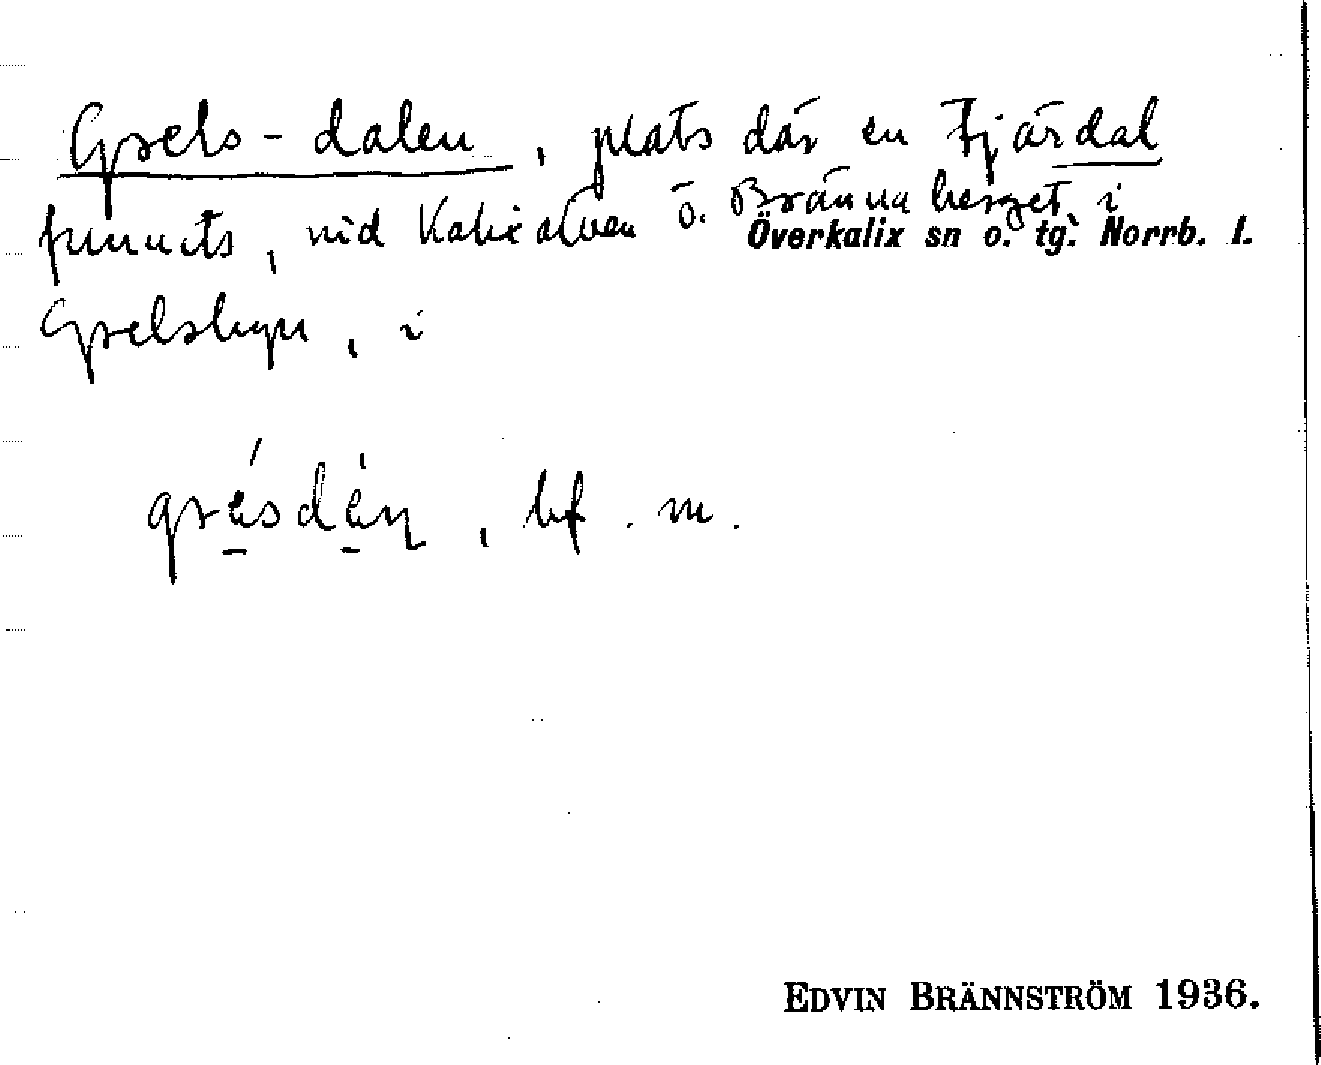 Grels-dalen, plats där en tjärdal
funnits, vid Kalixälven ö. Brännaberget i
Överkalix sn o. tg. Norrb. l.
Grelsbyn, i
gre̱sde̱n, bf. m.
EDVIN BRÄNNSTRÖM 1936.